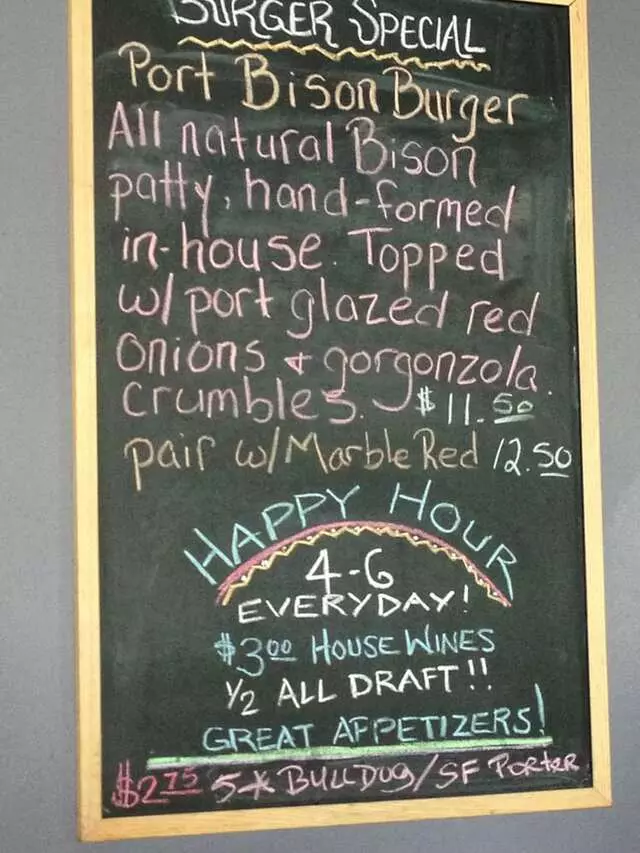 BURGER SPECIAL
Port Bison Burger
All natural Bison
patty, hand-formed
in-house. Topped
w/ port glazed red
onions + gorgonzola
crumbles. $11.50
pair w/ Marble Red 12.50
HAPPY HOUR
4-6
EVERYDAY!
$3.00 HOUSE WINES
1/2 ALL DRAFT!!
GREAT APPETIZERS!
$2.75 5* BULLDOG/SF PORTER